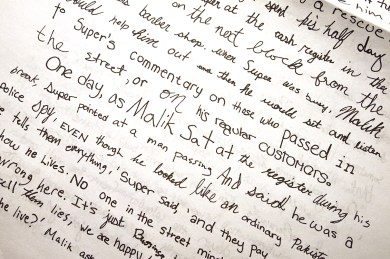 a rescue
him
spent his half day
per at the cash register in the
's barber shop. when Super was busy, Malik
ould help him out and then he would sit and listen
on the next block from the
to Super's commentary on those who passed in
the street, or on his regular customers.
One day, as Malik Sat at the register during his
break, Super pointed at a man passing And said he was a
police spy, EVEN though he looked like an ordinary Pakist
e tells them everything,' Super said, 'and they pay
how he likes. No one in the street mind
wrong here. It's just Business
sell them lies, we are happy
he live?' Malik ask